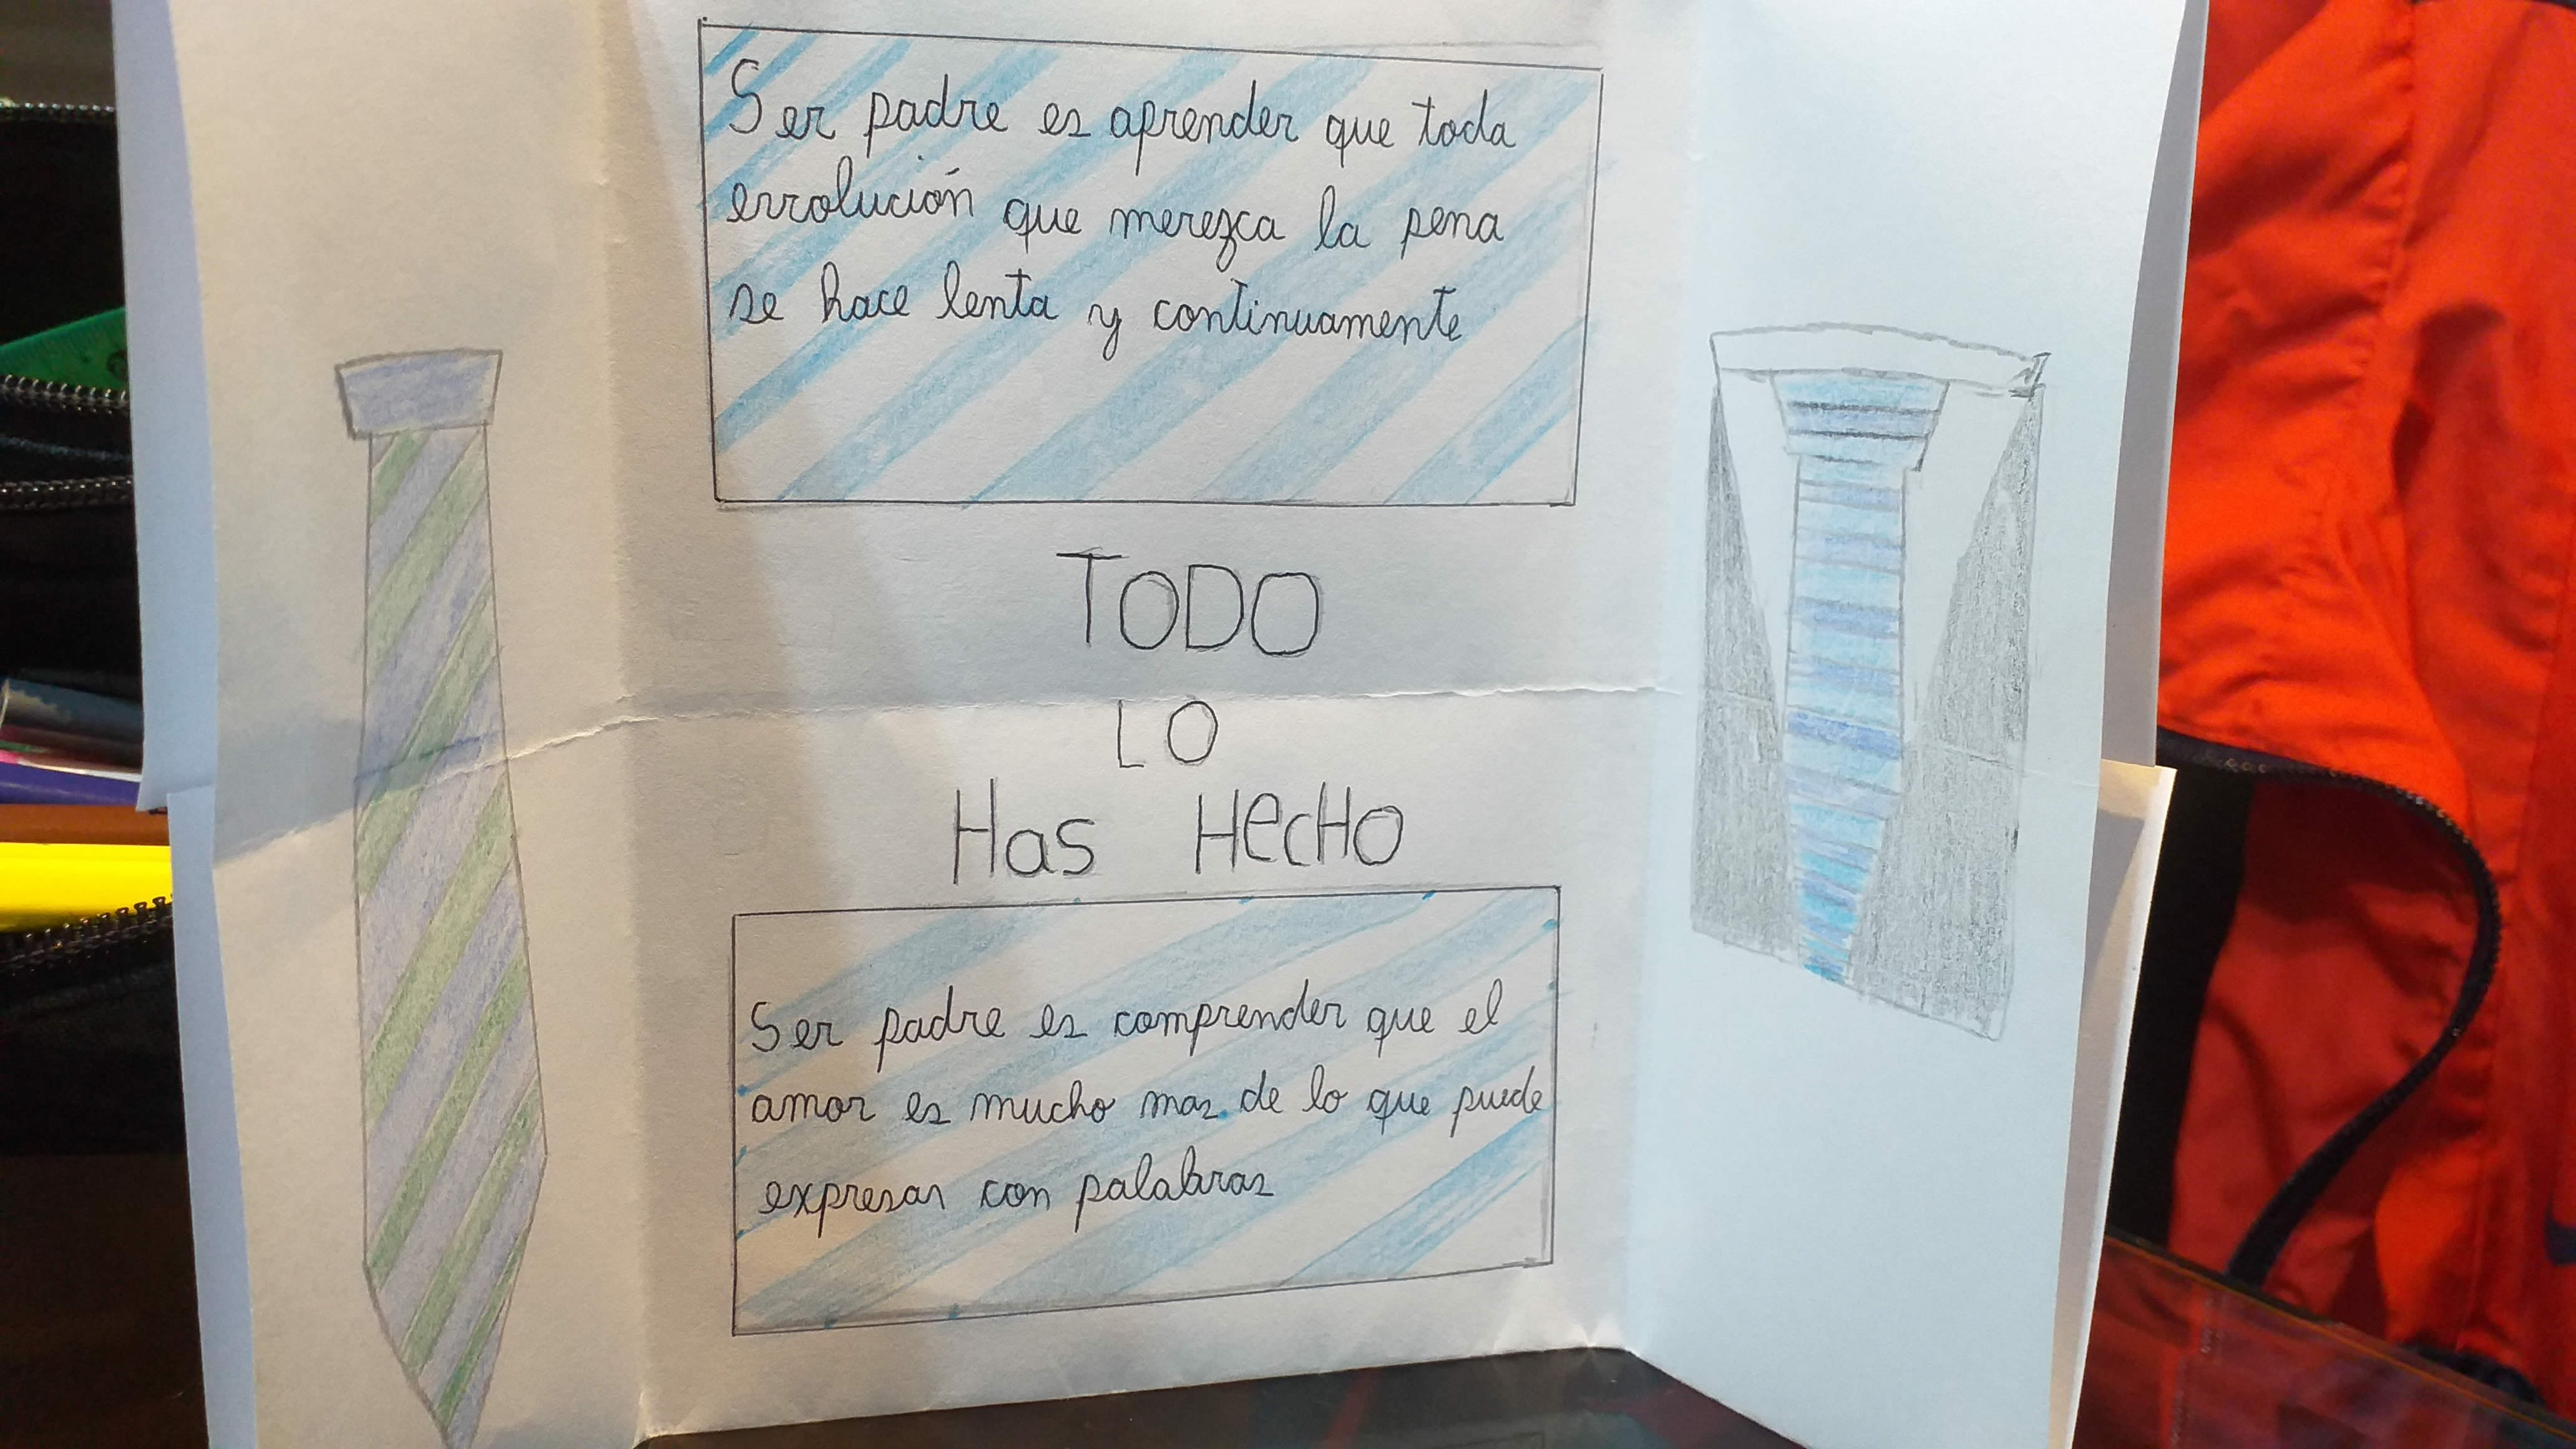 Ser padre es aprender que toda
errolución que merezca la pena
se hace lenta y continuamente
TODO
LO
Has HecHo
Ser padre es comprender que el
amor es mucho mas de lo que puede
expresar con palabras